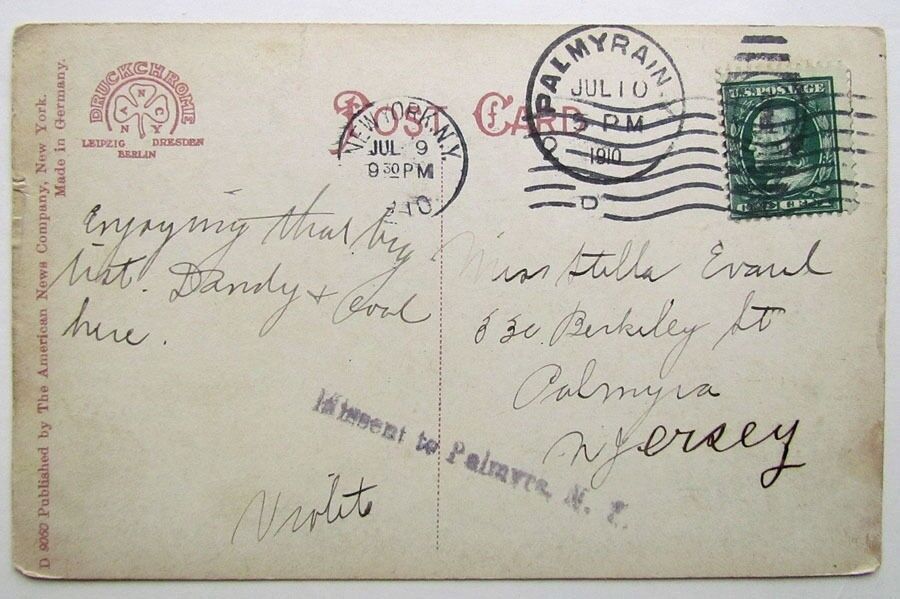 DRUCKCHROME
ANCNY
LEIPZIG DRESDEN
BERLIN
D 9050 Published by The American News Company, New York.
Made in Germany.
POST CARD
NEW YORK, N.Y.
JUL 9
9 30 PM
10
PALMYRA N.
JUL 10
PM
1910
D
U.S. POSTAGE
Enjoying that big
list. Dandy + cool
here.
Violet
Miss Stella
Berkeley St
Palmyra
N Jersey
Missent to Palmyra, N. Y.